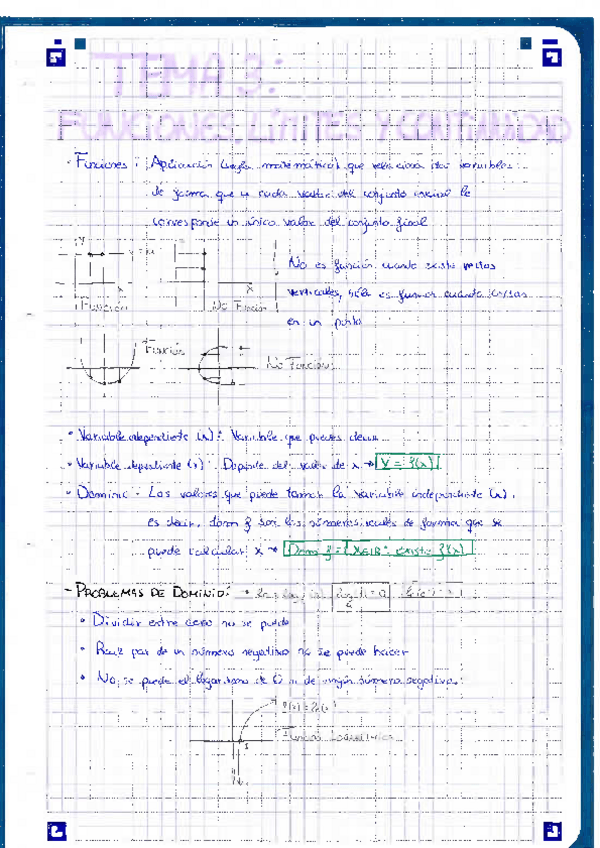 TEMA 3:
FUNCIONES, LÍMITES Y CONTINUIDAD
- Funciones: Aplicación (regla matemática) que relaciona dos variables
de forma que a cada valor del conjunto inicial le
corresponde un único valor del conjunto final
Y
X
Función
No Función
No es función cuando existe rectas
verticales, sólo es función cuando cortas
en un punto
Función
No Función
• Variable independiente (x): Variable que puedes
• Variable dependiente (y): Depende del valor de x → Y = f(x)
- Dominio - Los valores que puede tomar la variable independiente (x),
es decir, dom f son los números reales de forma que se
puede calcular x → Dom f = {x∈R: existe f(x)}
- PROBLEMAS DE DOMINIO:
• Dividir entre cero no se puede
• Raíz par de un número negativo no se puede hacer
• No se puede el logaritmo de 0 ni de ningún número negativo.
Función Logarítmica